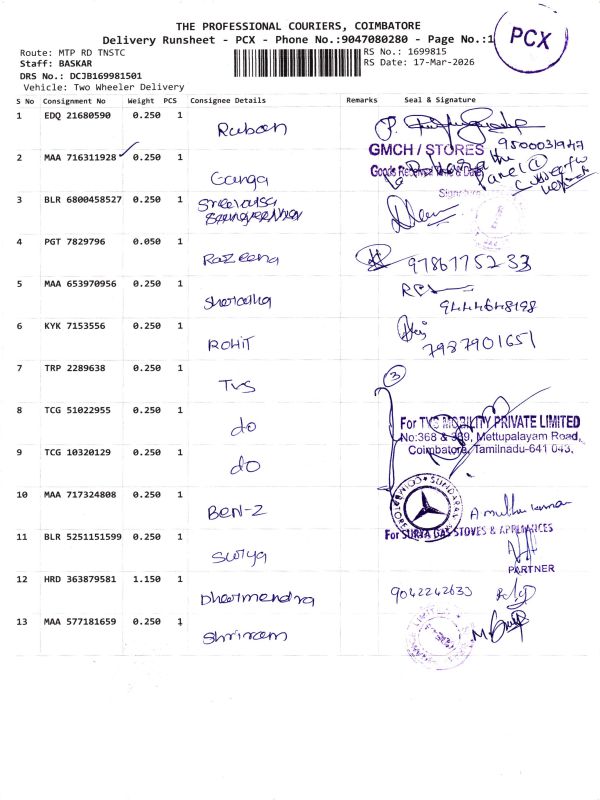 THE PROFESSIONAL COURIERS, COIMBATORE
Delivery Runsheet - PCX - Phone No.:9047080280 - Page No.:1
PCX
Route: MTP RD TNSTC
RS No.: 1699815
Staff: BASKAR
RS Date: 17-Mar-2026
DRS No.: DCJB169981501
Vehicle: Two Wheeler Delivery
S No Consignment No Weight PCS Consignee Details Remarks Seal & Signature
1 EDQ 21680590 0.250 1 Ruban
GMCH / STORES 9500031947
2 MAA 716311928 0.250 1 Ganga
Goods Received
Panel @
Signature
3 BLR 6800458527 0.250 1
4 PGT 7829796 0.050 1 Razeena 9786775233
5 MAA 653970956 0.250 1
9444648198
6 KYK 7153556 0.250 1 ROHIT
7987901651
7 TRP 2289638 0.250 1 TVS
3
8 TCG 51022955 0.250 1 do
For TVS MOBILITY PRIVATE LIMITED
No:368 & 369, Mettupalayam Road,
Coimbatore, Tamilnadu-641 043.
9 TCG 10320129 0.250 1 do
10 MAA 717324808 0.250 1 BEN-Z
SUNDARAM MOTORS COIMBATORE
For SURYA GAS STOVES & APPLIANCES
11 BLR 5251151599 0.250 1 Surya
PARTNER
12 HRD 363879581 1.150 1 Dharmendra 9042242633
13 MAA 577181659 0.250 1 Shriram